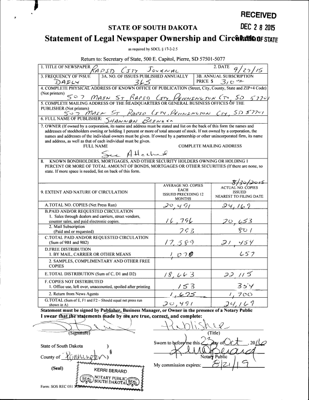 RECEIVED
DEC 28 2015
STATE OF SOUTH DAKOTA
Statement of Legal Newspaper Ownership and Circulation
as required by SDCL § 17-2-2.5
Return to: Secretary of State, 500 E. Capitol, Pierre, SD 57501-5077
1. TITLE OF NEWSPAPER Rapid City Journal
2. DATE
3. FREQUENCY OF ISSUE Daily
3A. NO. OF ISSUES PUBLISHED ANNUALLY 365
3B. ANNUAL SUBSCRIPTION PRICE $
4. COMPLETE MAILING ADDRESS OF KNOWN OFFICE OF PUBLICATION (Street, City, County, State and ZIP+4 Code) (Not printers)
507 Main St. Rapid City Pennington Co SD
5. COMPLETE MAILING ADDRESS OF THE HEADQUARTERS OR GENERAL BUSINESS OFFICES OF THE PUBLISHER (Not printers)
507 Main St. Rapid City, Pennington Co, SD
6. FULL NAME OF PUBLISHER Shannon Brinker
7. OWNER (If owned by a corporation, its name and address must be stated and also on the back of this form the names and addresses of stockholders owning or holding 1 percent or more of total amount of stock. If not owned by a corporation, the names and addresses of the individual owners must be given. If owned by a partnership or other unincorporated firm, its name and address, as well as that of each individual must be given.
FULL NAME
COMPLETE MAILING ADDRESS
See Attached
8. KNOWN BONDHOLDERS, MORTGAGEES, AND OTHER SECURITY HOLDERS OWNING OR HOLDING 1 PERCENT OR MORE OF TOTAL AMOUNT OF BONDS, MORTGAGES OR OTHER SECURITIES (If there are none, so state. If more space is needed, list on back of this form.
9. EXTENT AND NATURE OF CIRCULATION
AVERAGE NO. COPIES EACH ISSUED PRECEDING 12 MONTHS
ACTUAL NO. COPIES ISSUED NEAREST TO FILING DATE
A. TOTAL NO. COPIES (Net Press Run) 20,491 24,169
B. PAID AND/OR REQUESTED CIRCULATION
1. Sales through dealers and carriers, street vendors, counter sales, and paid electronic copies. 20,653
2. Mail Subscription (Paid and or requested) 801
C. TOTAL PAID AND/OR REQUESTED CIRCULATION (Sum of 9B1 and 9B2) 17,589 21,454
D. FREE DISTRIBUTION
1. BY MAIL, CARRIER OR OTHER MEANS 657
2. SAMPLES, COMPLIMENTARY AND OTHER FREE COPIES
E. TOTAL DISTRIBUTION (Sum of C, D1 and D2) 18,663 22,115
F. COPIES NOT DISTRIBUTED
1. Office use, left over, unaccounted, spoiled after printing 153 354
2. Return from News Agents 1,675 1,700
G. TOTAL (Sum of E, F1 and F2 – Should equal net press run shown in A) 20,491 24,169
Statement must be signed by Publisher, Business Manager, or Owner in the presence of a Notary Public
I swear that the statements made by me are true, correct, and complete:
Publisher
(Signature) (Title)
State of South Dakota
Sworn to before me this day of
County of Pennington
Notary Public
(Seal)
KERRI BERARD
NOTARY PUBLIC
SOUTH DAKOTA
SEAL SEAL
My commission expires: